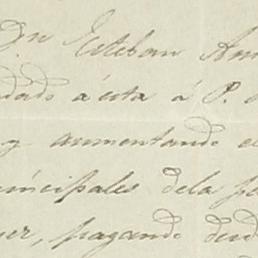 Dn Esteban
dado á esta á P.
y aumentando e
incipales dela pe
er, pagando desd